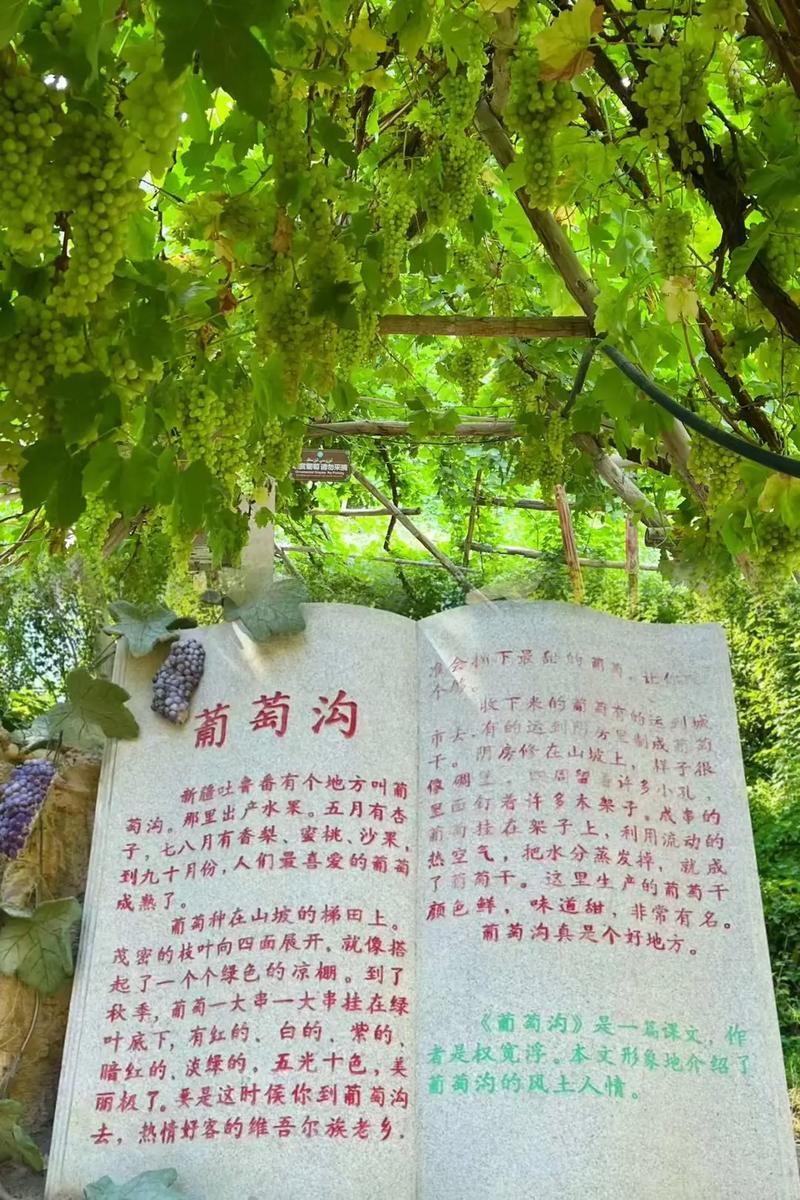 葡萄 请勿采摘
葡萄沟
新疆吐鲁番有个地方叫葡
萄沟。那里出产水果。五月有杏
子，七八月有香梨、蜜桃、沙果，
到九十月份，人们最喜爱的葡萄
成熟了。
葡萄种在山坡的梯田上。
茂密的枝叶向四面展开，就像搭
起了一个个绿色的凉棚。到了
秋季，葡萄一大串一大串挂在绿
叶底下，有红的、白的、紫的、
暗红的、淡绿的，五光十色，美
丽极了。要是这时候你到葡萄沟
去，热情好客的维吾尔族老乡，
准会摘下最甜的葡萄，让你
收下来的葡萄有的运到城
市去，有的运到阴房里制成葡萄
干。阴房修在山坡上，样子很
像碉堡，四周留着许多小孔，
里面钉着许多木架子。成串的
葡萄挂在架子上，利用流动的
热空气，把水分蒸发掉，就成
了葡萄干。这里生产的葡萄干
颜色鲜，味道甜，非常有名。
葡萄沟真是个好地方。
《葡萄沟》是一篇课文，作
者是权宽浮。本文形象地介绍了
葡萄沟的风土人情。